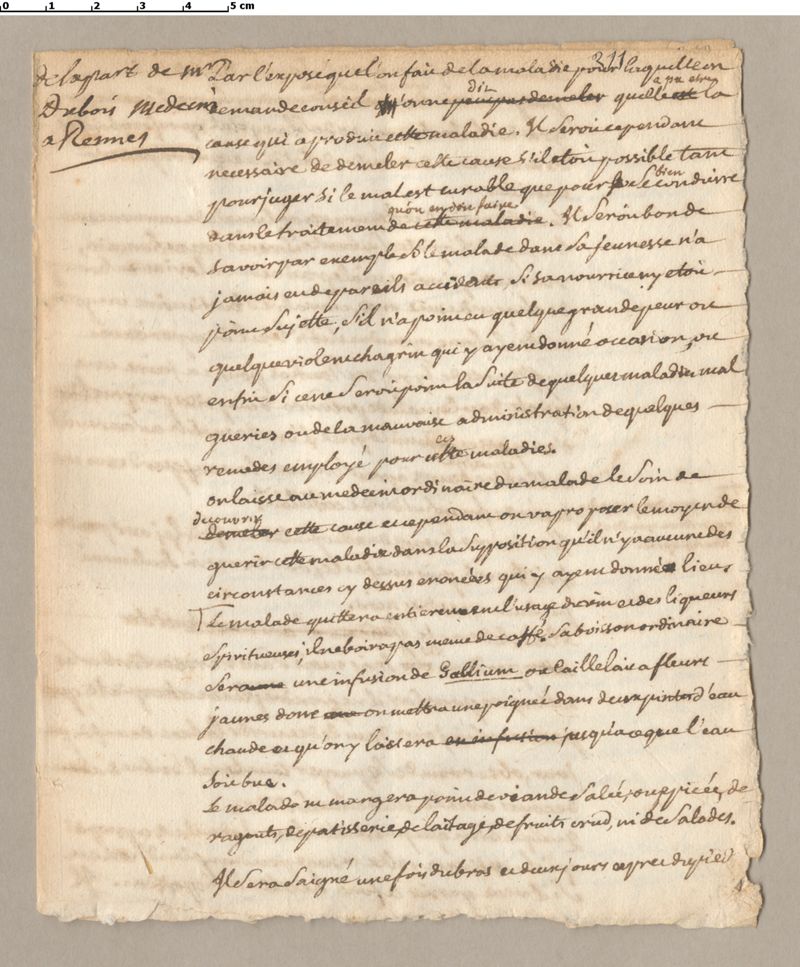 0 1 2 3 4 5 cm
311
de la part de Mr
Dubois Medecin
a Rennes
Par l'exposé que l'on fait de la maladie pour laquelle on
demande conseil on ne peut pas demeler quelle est la
dit
a pu etre
cause qui a produit cette maladie. Il seroit cependant
necessaire de demeler cette cause s'il etoit possible tant
pour juger si le mal est curable que pour se bien conduire
dans le traitement de cette maladie. Il seroit bon de
qu'on en doit faire
savoir par exemple si le malade dans sa jeunesse n'a
jamais eu de pareils accidents, si sa nourrice n'y etoit
point sujette, s'il n'a point eu quelque grande peur ou
quelque violent chagrin qui y ayent donné occasion, ou
enfin si ce ne seroit point la suite de quelques maladies mal
gueries ou de la mauvaise administration de quelques
remedes employé pour ces maladies.
on laisse au medecin ordinaire du malade le soin de
decouvrir
demeler cette cause et cependant on va proposer le moyen de
guerir cette maladie dans la supposition qu'il n'y a aucune des
circonstances cy dessus enoncées qui y ayent donné lieu
Le malade quittera entierement l'usage du vin et des liqueurs
spiritueuses, il ne boira pas meme de caffé. sa boisson ordinaire
sera une infusion de Gallium ou caillelait a fleurs
jaunes dont on mettra une poignée dans deux pintes d'eau
chaude et qu'on y laissera en infusion jusqu'a ce que l'eau
soit bue.
Le malade ne mangera point de viande salée, ou epicée, de
ragouts, de patisserie, de laitage, de fruits crud, ni de salades.
Il sera saigné une fois du bras et deux jours apres du pied